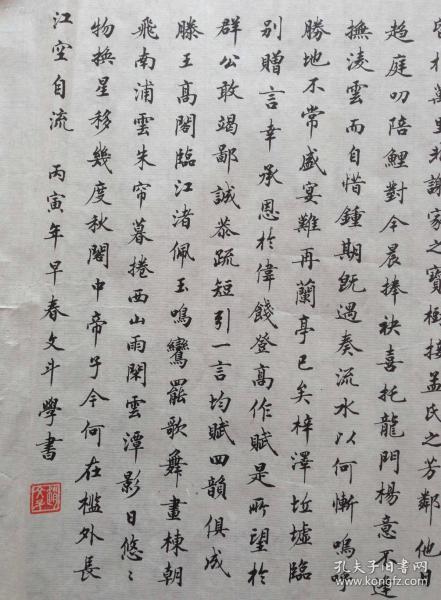 宅於萬里非謝家之寶樹接孟氏之芳鄰他日
趨庭叨陪鯉對今晨捧袂喜托龍門楊意不逢
撫淩雲而自惜鍾期既遇奏流水以何慚嗚呼
勝地不常盛宴難再蘭亭已矣梓澤坵墟臨
別贈言幸承恩於偉餞登高作賦是所望於
群公敢竭鄙誠恭疏短引一言均賦四韻俱成
滕王高閣臨江渚佩玉鳴鸞罷歌舞畫棟朝
飛南浦雲朱帘暮捲西山雨閑雲潭影日悠〻
物換星移幾度秋閣中帝子今何在檻外長
江空自流 丙寅年早春文斗學書
孔夫子旧书网
www.kongfz.com